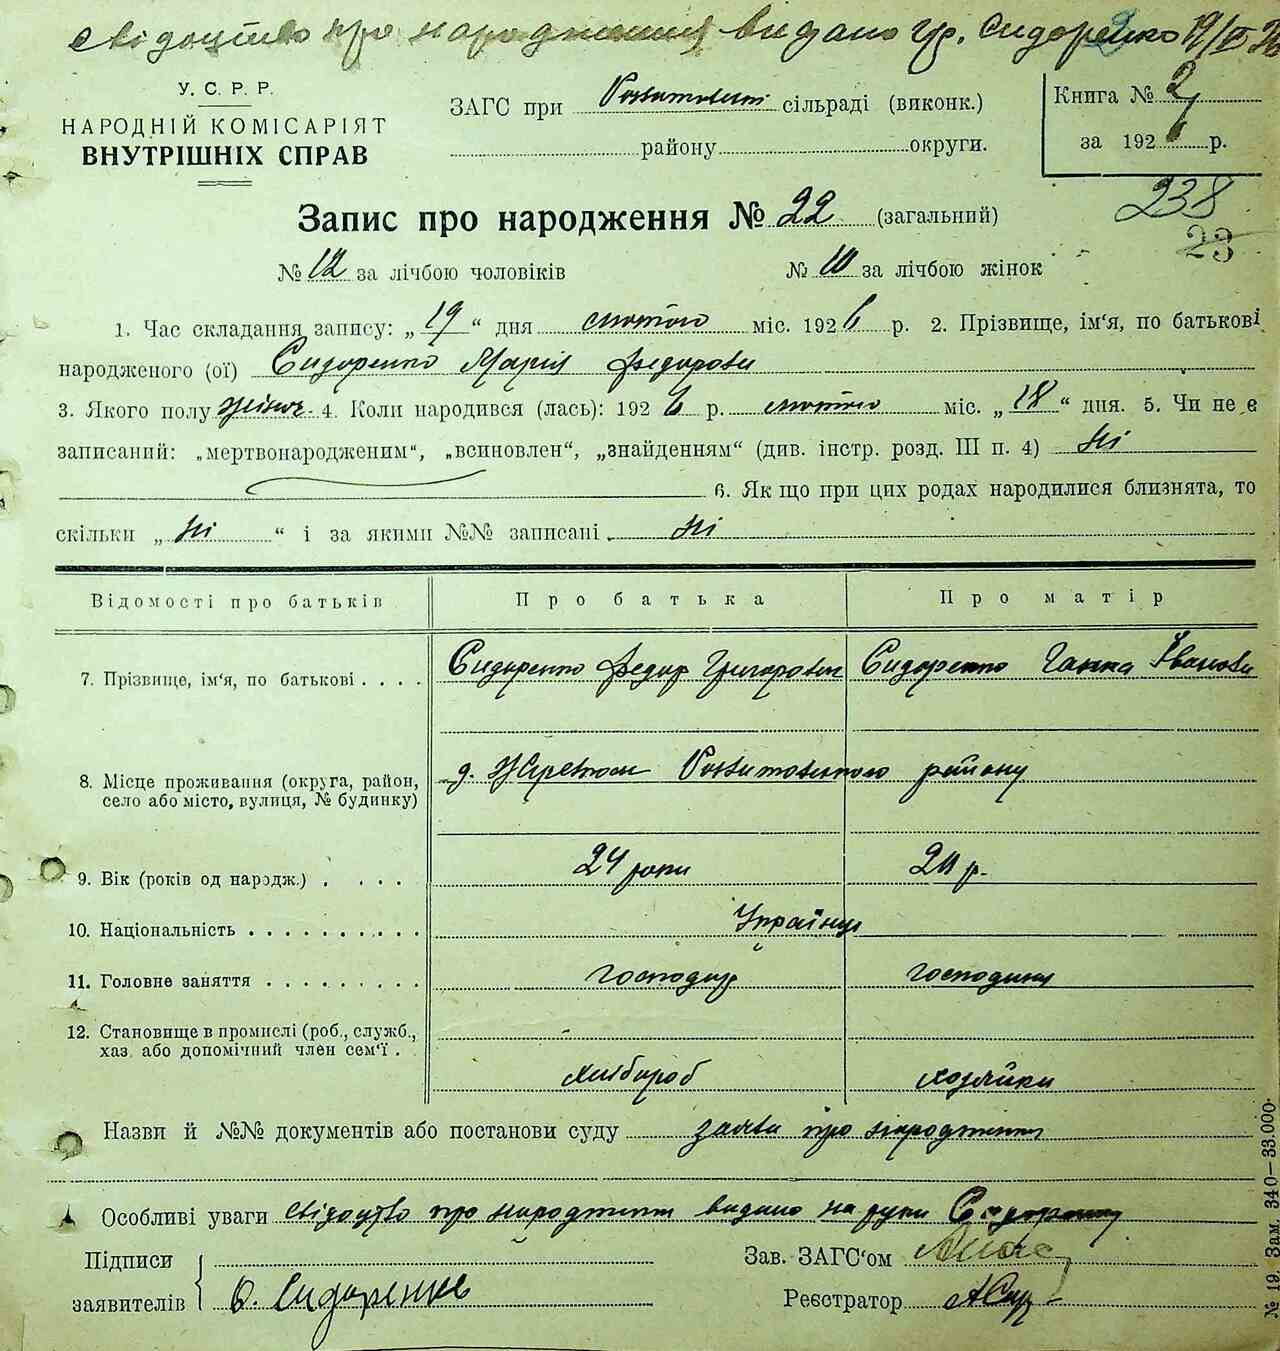 Свідоцтво про народження видано гр. Сидоренко 19/II 26
У. С. Р. Р.
НАРОДНІЙ КОМІСАРІЯТ
ВНУТРІШНІХ СПРАВ
ЗАГС при сільраді (виконк.)
району округи.
Книга № 2
за 1926 р.
238
23
Запис про народження № 22 (загальний)
№ 12 за лічбою чоловіків № 10 за лічбою жінок
1. Час складання запису: „19“ дня лютого міс. 1926 р. 2. Прізвище, ім'я, по батькові
народженого (ої) Сидоренко Марія Федорови
3. Якого полу жіноч. 4. Коли народився (лась): 1926 р. лютого міс. „18“ дня. 5. Чи не є
записаний: „мертвонародженим“, „всиновлен“, „знайденням“ (див. інстр. розд. III п. 4) Ні
6. Як що при цих родах народилися близнята, то
скільки „Ні“ і за якими №№ записані Ні
Відомості про батьків Про батька Про матір
7. Прізвище, ім'я, по батькові . . . . Сидоренко Федор Григорович Сидоренко Ганна Іванови
8. Місце проживання (округа, район,
село або місто, вулиця, № будинку) д. району
9. Вік (років од народж.) . . . . 24 роки 20 р.
10. Національність . . . . . . . . . . Українці
11. Головне заняття . . . . . . . . . господар господиня
12. Становище в промислі (роб., служб.,
хаз. або допомічний член сем'ї . . хлібороб хозяйки
Назви й №№ документів або постанови суду заява про народження
Особливі уваги свідоцтво про народження видано на руки Сидоренку
Підписи
заявителів Ф. Сидоренко
Зав. ЗАГС'ом
Реєстратор
№ 19. Зам. 340—33.000.